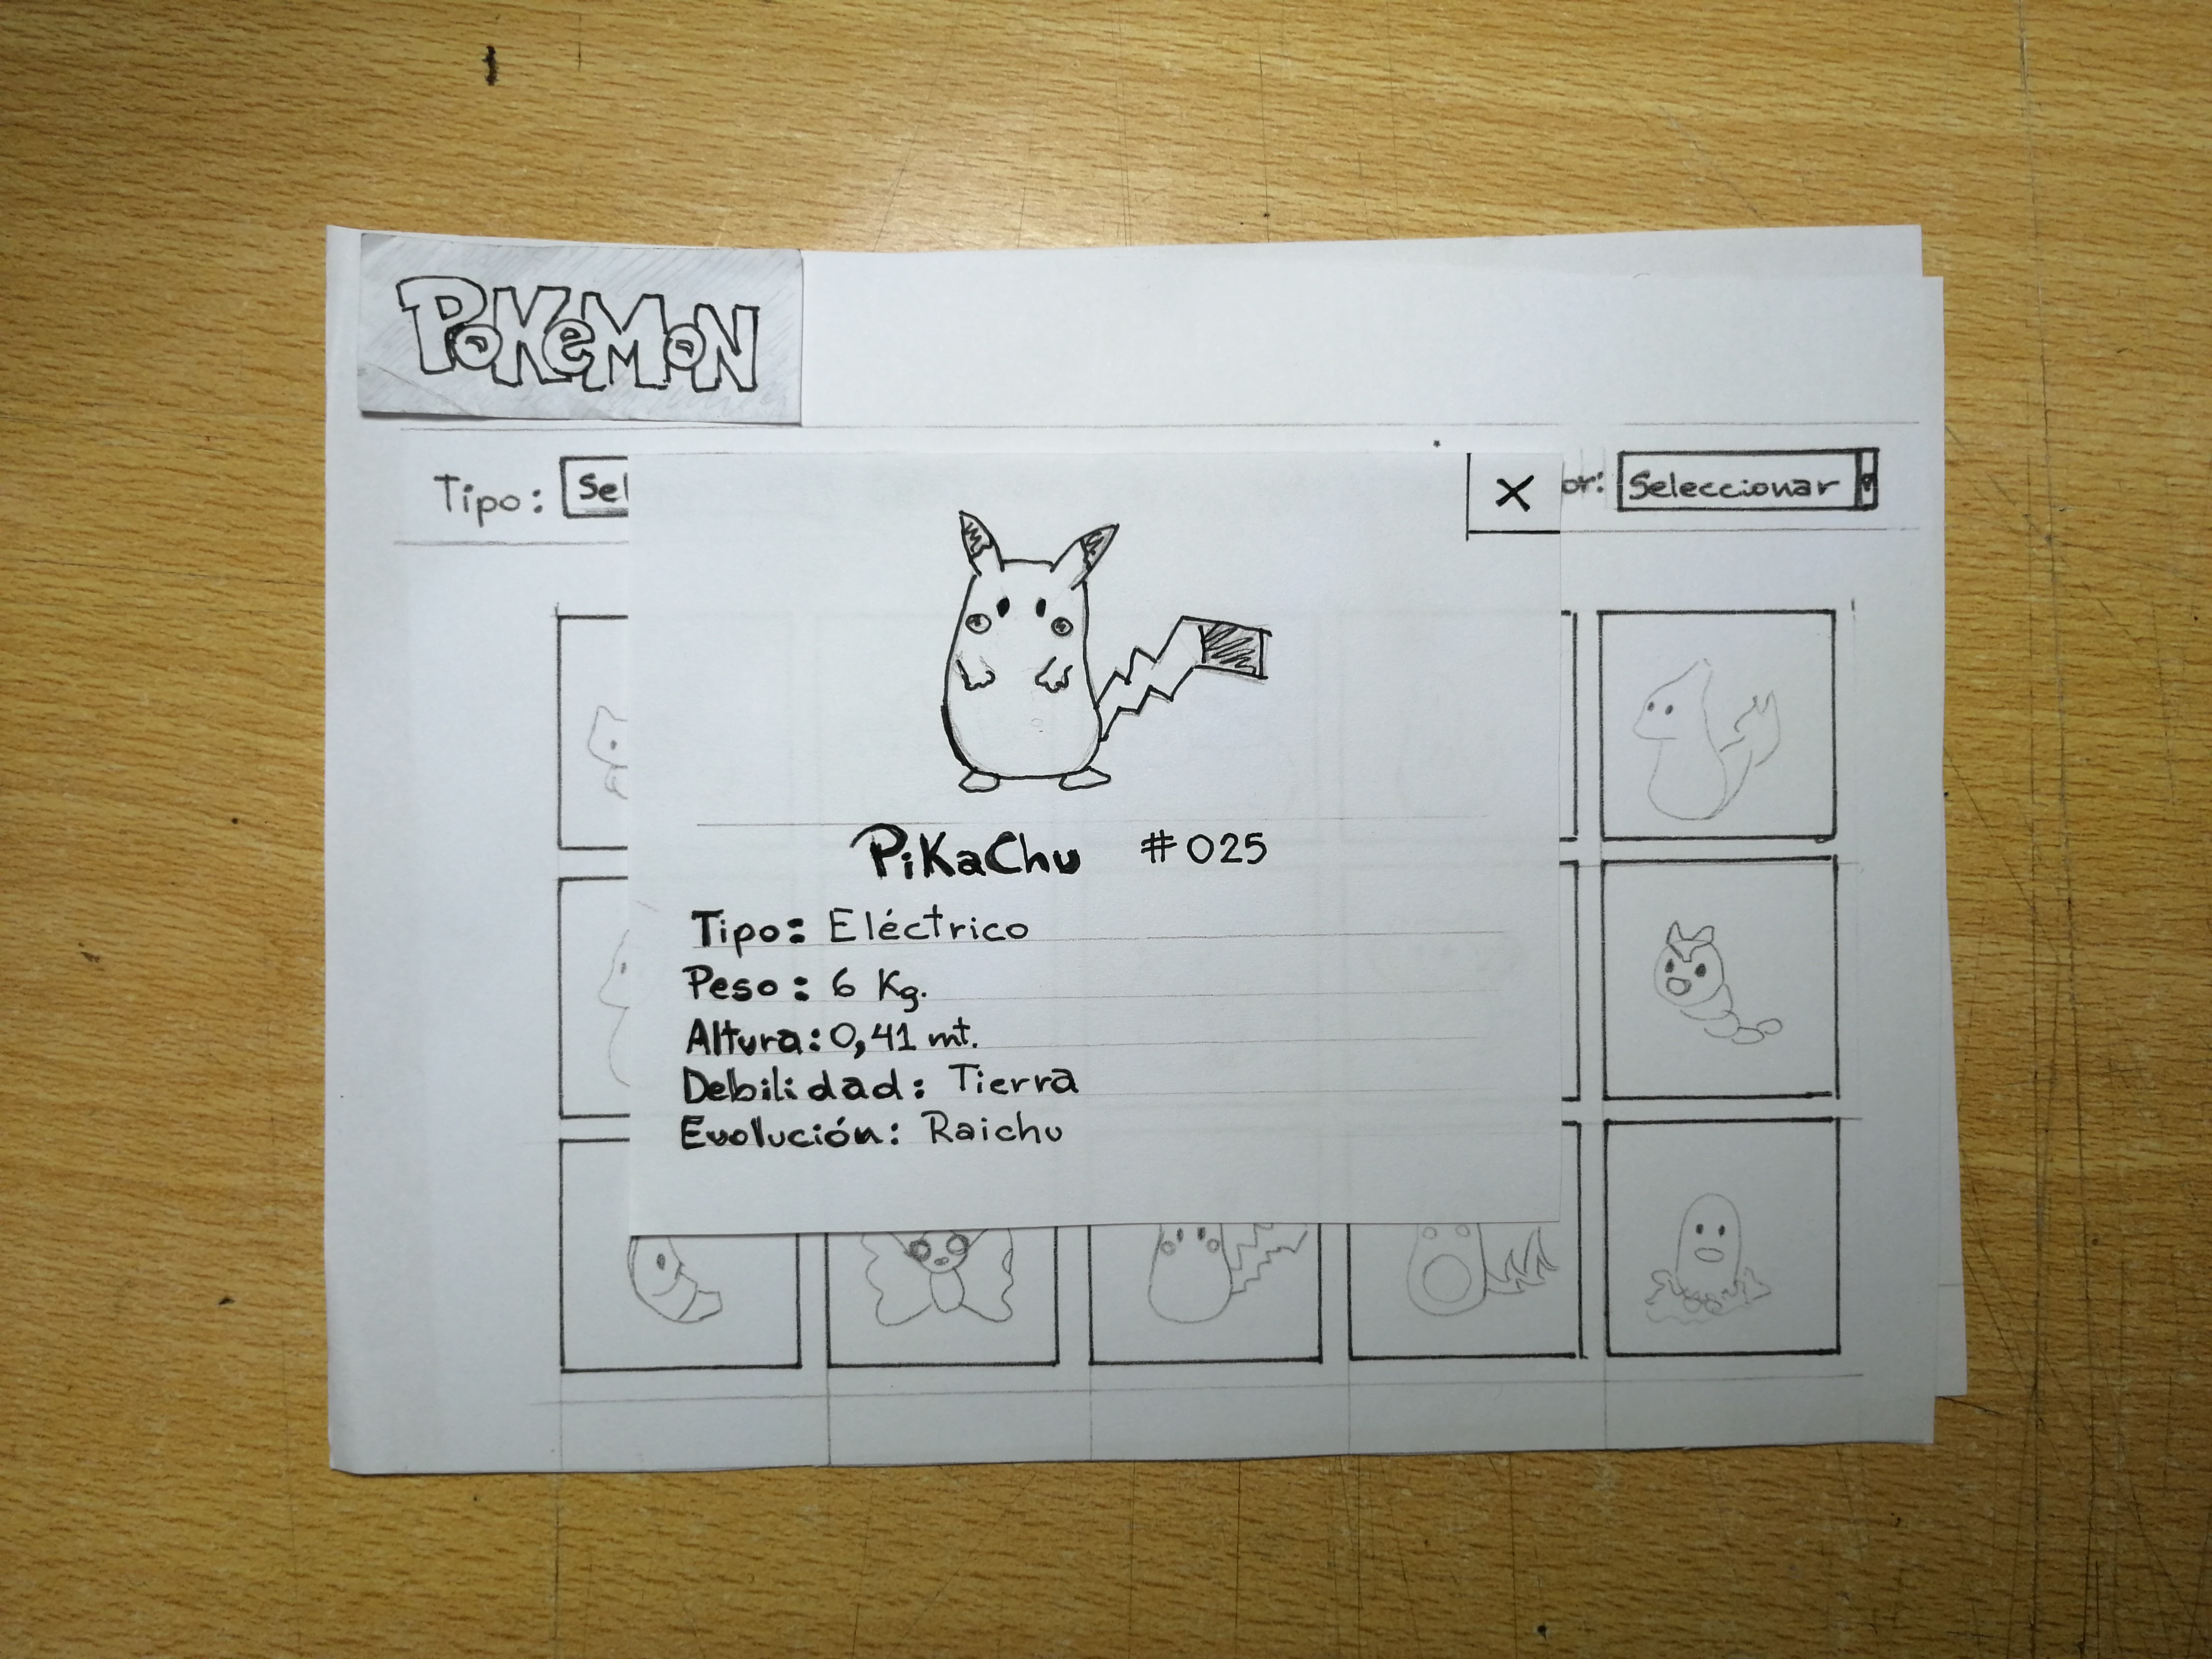 PoKeMoN
Tipo: Sel or: Seleccionar
X
PiKaChu #025
Tipo: Eléctrico
Peso: 6 Kg.
Altura: 0,41 mt.
Debilidad: Tierra
Evolución: Raichu